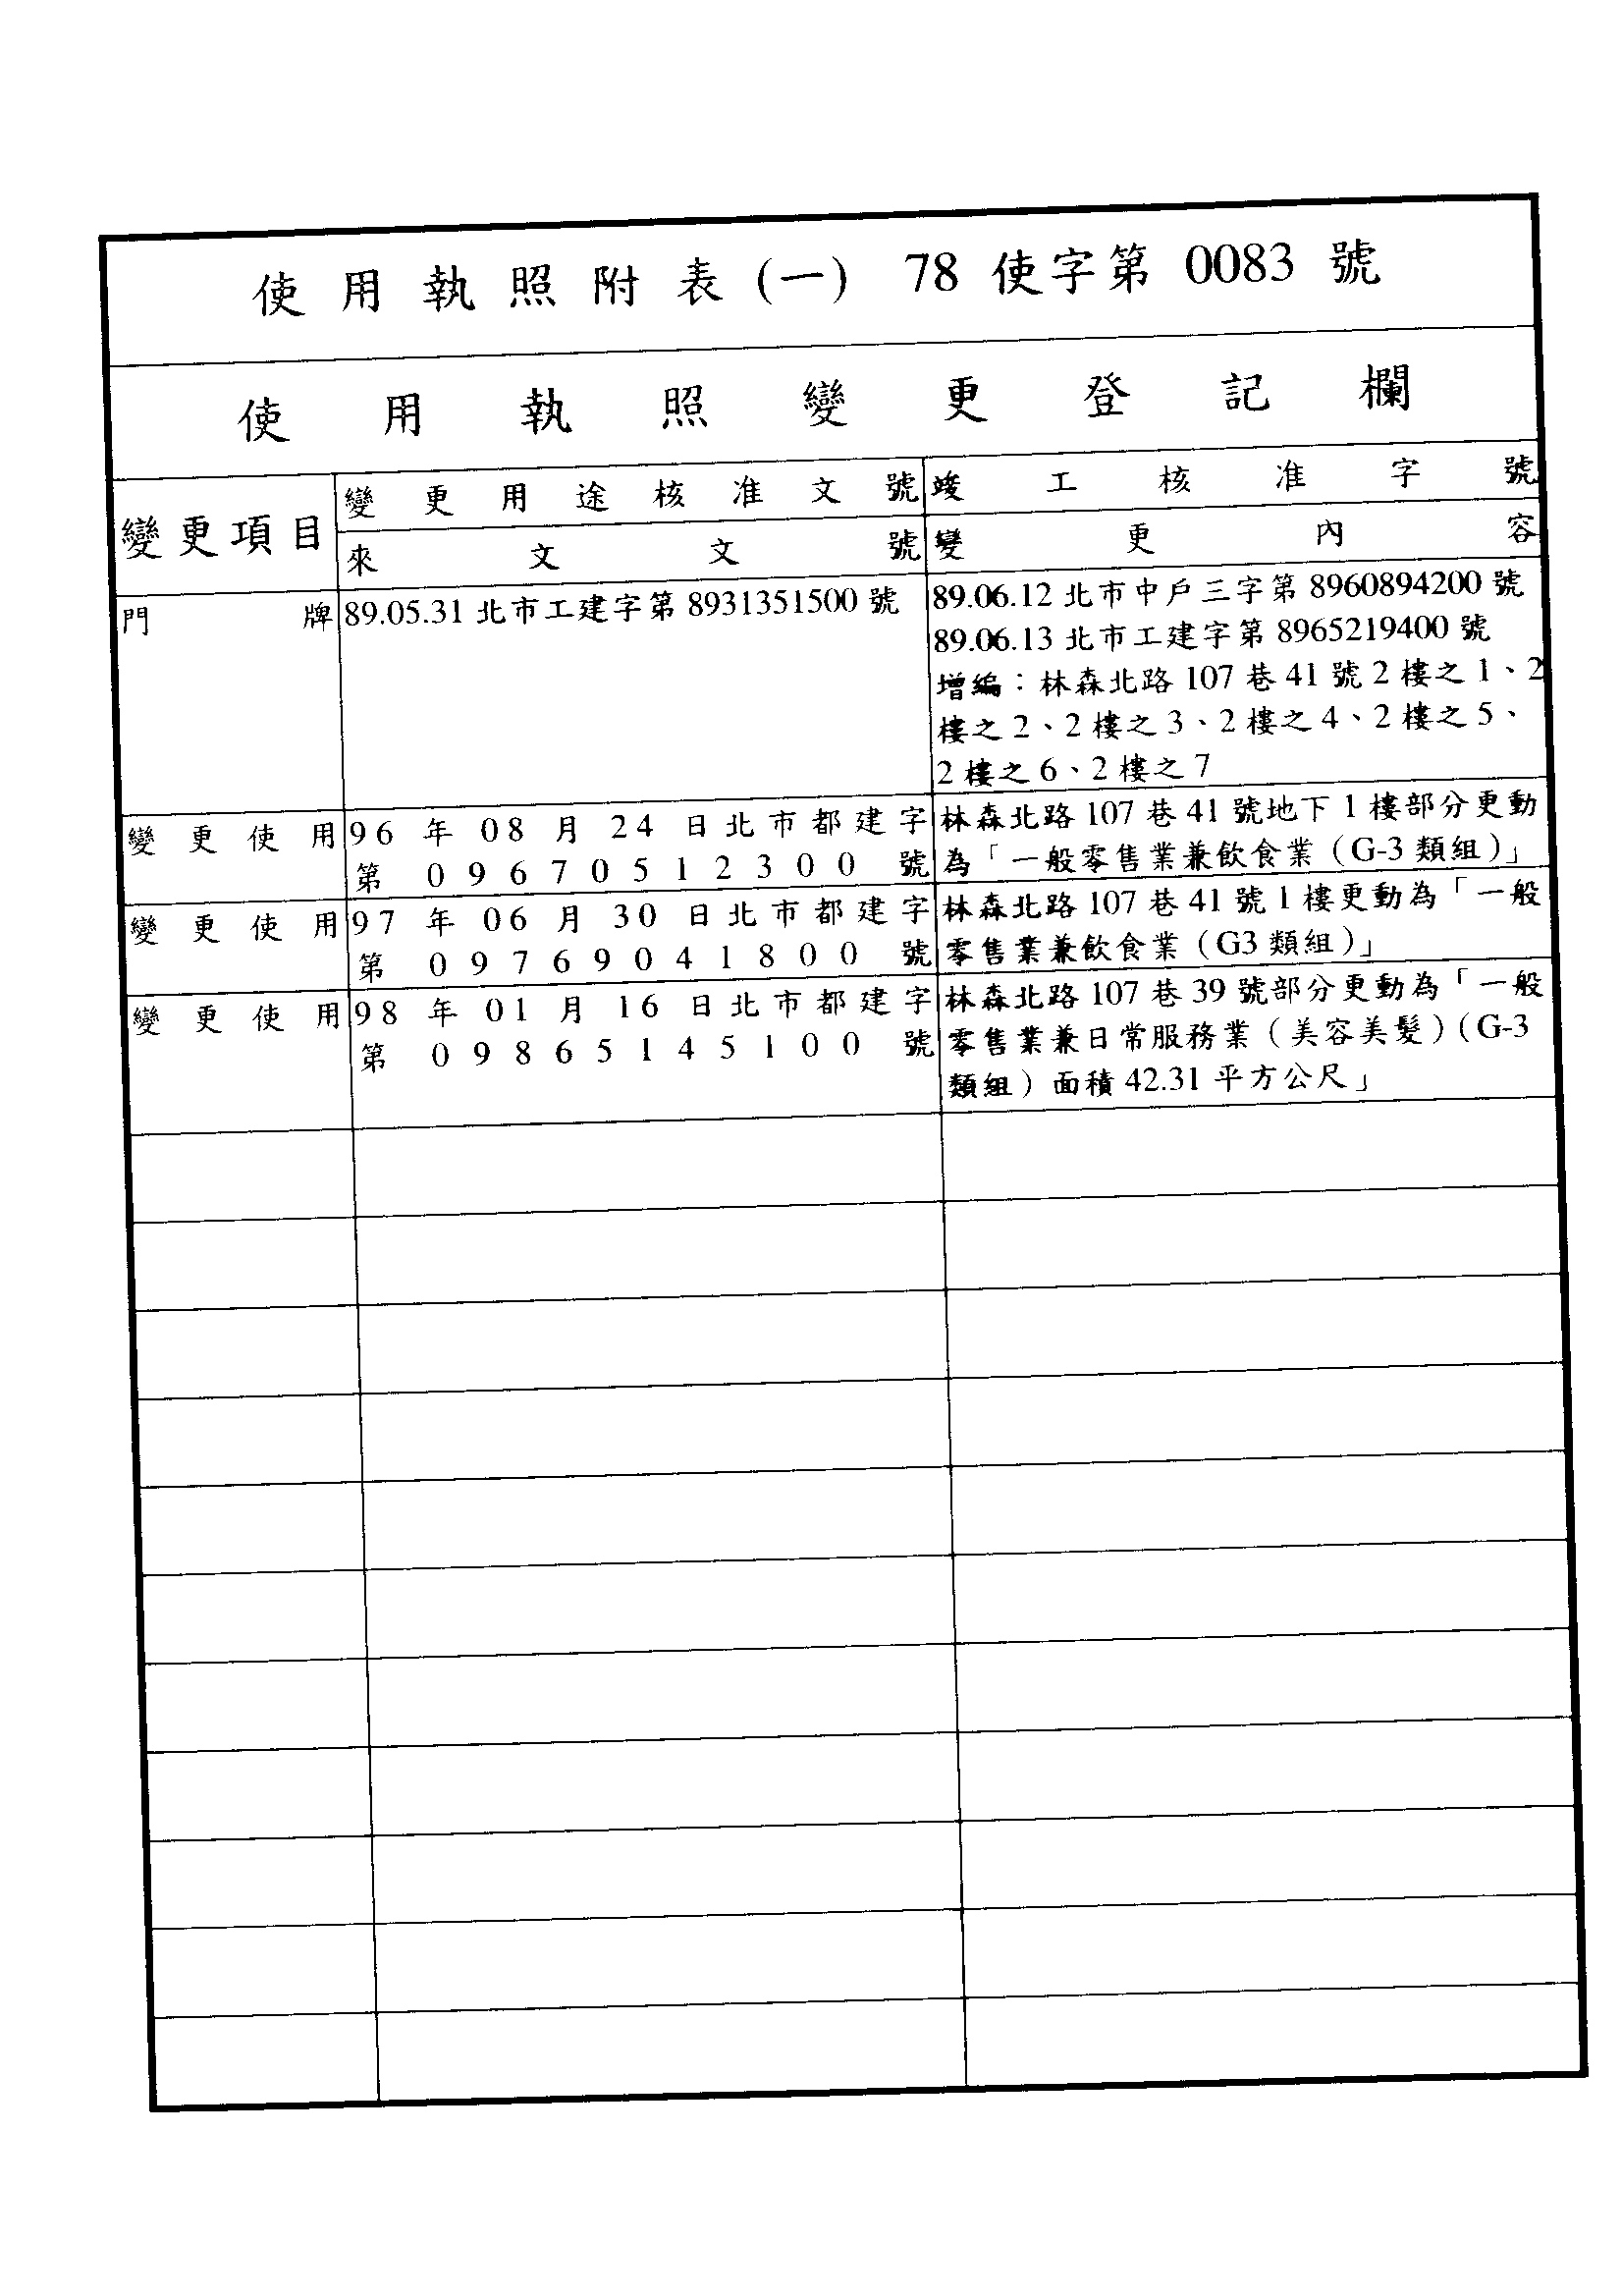 使用執照附表(一) 78使字第0083號
使用執照變更登記欄
變更項目
變更用途核准文號
竣工核准字號
來文文號
變更內容
門牌
89.05.31北市工建字第8931351500號
89.06.12北市中戶三字第8960894200號
89.06.13北市工建字第8965219400號
增編：林森北路107巷41號2樓之1、2
樓之2、2樓之3、2樓之4、2樓之5、
2樓之6、2樓之7
變更使用
96年08月24日北市都建字
第09670512300號
林森北路107巷41號地下1樓部分更動
為「一般零售業兼飲食業（G-3類組）」
變更使用
97年06月30日北市都建字
第09769041800號
林森北路107巷41號1樓更動為「一般
零售業兼飲食業（G3類組）」
變更使用
98年01月16日北市都建字
第09865145100號
林森北路107巷39號部分更動為「一般
零售業兼日常服務業（美容美髮）（G-3
類組）面積42.31平方公尺」